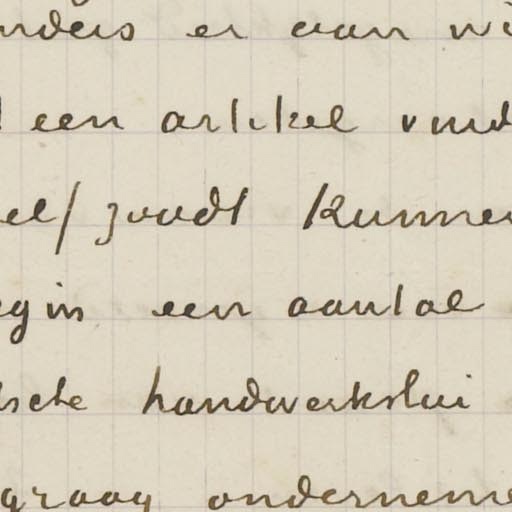 nders er aan wi
een artikel vind
el/ zoudt kunnen
egin een aantal
sche handwerkslui
graag onderneme